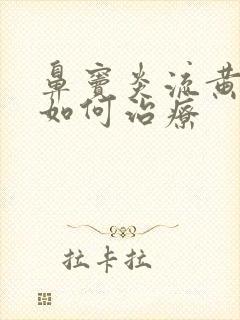 鼻窦炎流黄
如何治疗
拉卡拉